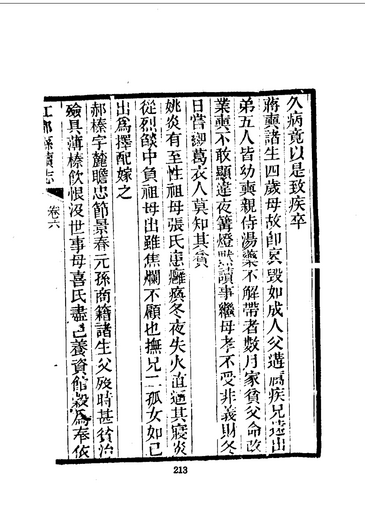 久病竟以是致疾卒
蔣奭諸生四歲母故即哀毀如成人父遘腐疾兄遠出
弟五人皆幼奭親侍湯藥不解帶者數月家貧父命改
業奭不敢顯違夜篝燈默讀事繼母孝不受非義財冬
日嘗御葛衣人莫知其貧
姚炎有至性祖母張氏患癱瘓冬夜失火直逼其寢炎
從烈燄中負祖母出雖焦爛不顧也撫兄二孤女如己
出為擇配嫁之
郝榛字麓瞻忠節景春元孫商籍諸生父歿時甚貧治
殮具薄榛飲恨沒世事母喜氏盡己養資館穀為奉依
江都縣續志
卷六
213